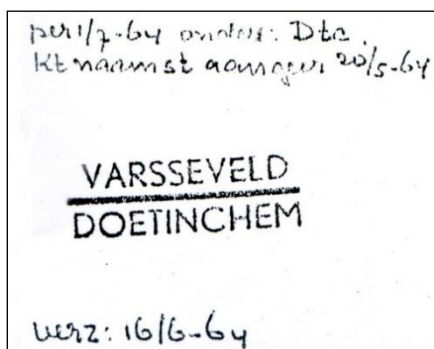 per 1/7-64 onder: Dtc.
Kt naamst aanvragen 20/5-64
VARSSEVELD
DOETINCHEM
verz: 16/6-64